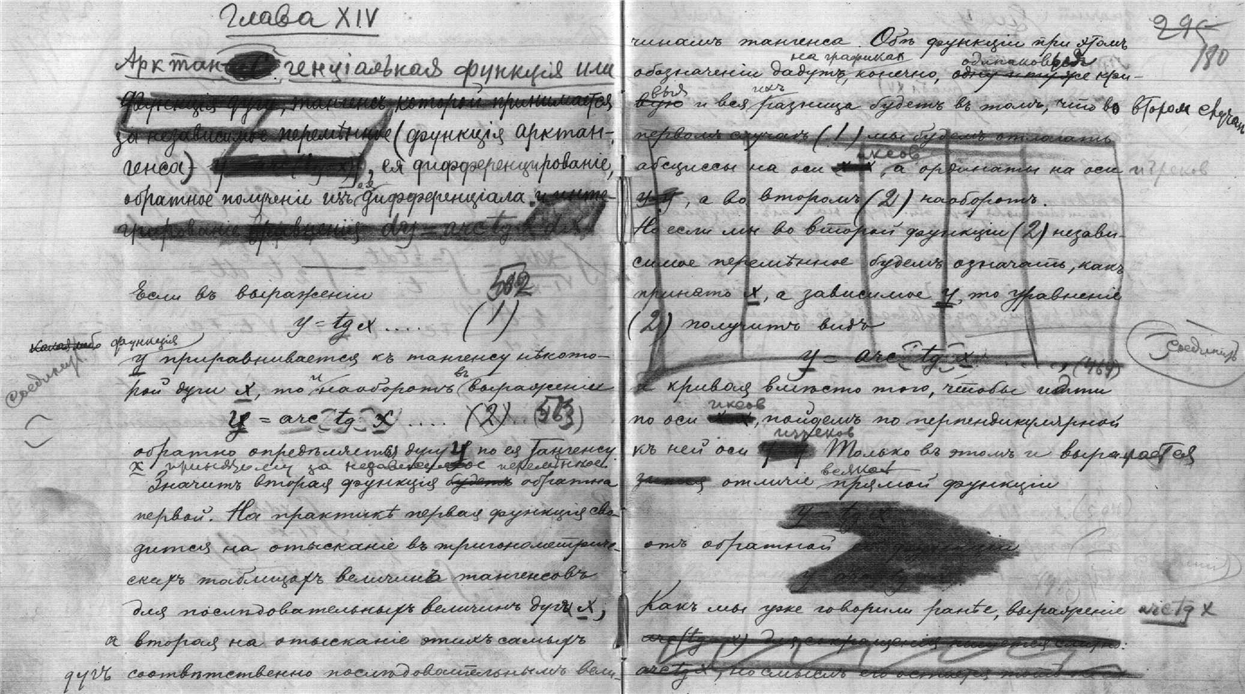 Глава XIV
Арктангенціальная функція или
функція дуги, тангенсъ которой принимается
за независимое перемѣнное (функція арктан-
генса) , ея дифференцированіе,
обратное полученіе изъ ея дифференціала и инте-
грированіе уравненія dy = arc tg x dx
Если въ выраженіи 562
y = tg x .... (1)
функція
y приравнивается къ тангенсу нѣкото-
соединить
рой дуги x, то и наоборотъ въ выраженіи
y = arc (tg) x .... (2) .. 563)
обратно опредѣляется дуга y по ея тангенсу
x принятому за независимое перемѣнное.
Значитъ вторая функція будетъ обратна
первой. На практикѣ первая функція сво-
дится на отысканіе въ тригонометриче-
скихъ таблицахъ величинъ тангенсовъ
для послѣдовательныхъ величинъ дугъ x,
а вторая на отысканіе этихъ самыхъ
дугъ соотвѣтственно послѣдовательнымъ вели-
295
180
чинамъ тангенса. Обѣ функціи при этомъ
на графикахъ одинаковыя
обозначеніи дадутъ, конечно, одну и ту же кри-
выя ихъ
вую и вся разница будетъ въ томъ, что во второмъ случаѣ
первомъ случаѣ (1) мы будемъ отлагать
иксовъ
абсциссы на оси , а ординаты на оси игрековъ
, а во второмъ (2) наоборотъ.
Но если мы во второй функціи (2) незави-
симое перемѣнное будемъ означать, какъ
принято x, а зависимое y, то уравненіе
(2) получитъ видъ
соединить
y = arc (tg) x ...., (464)
и кривая вмѣсто того, чтобы идти
иксовъ
по оси , пойдетъ по перпендикулярной
игрековъ
къ ней оси Только въ этомъ и выражается
всякой
отличіе прямой функціи
y = tg x
отъ обратной
y = arc
Какъ мы уже говорили ранѣе, выраженіе arc tg x
arc (tg = x)
arc tg x, но смыслъ его остается